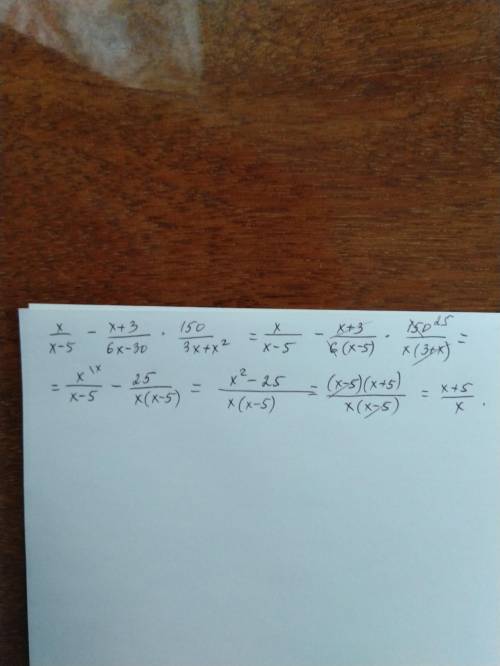 x/(x-5) - (x+3)/(6x-30) · 150/(3x+x²) = x/(x-5) - (x+3)/(6(x-5)) · 150^25/(x(3+x)) =
= x^(1x)/(x-5) - 25/(x(x-5)) = (x²-25)/(x(x-5)) = ((x-5)(x+5))/(x(x-5)) = (x+5)/x.